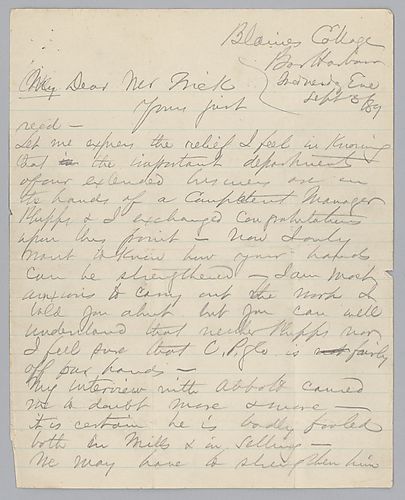 Blaines Cottage
Bar Harbour
Wednesday Eve
Sept 3/89
My Dear Mr Frick
Yours just
recd —
Let me express the relief I feel in knowing
that in the important department
of our extended business are in
the hands of a Competent Manager
Phipps & I exchanged congratulations
upon this point — Now I only
want to know how your hands
can be strengthened — I am most
anxious to carry out the work I
told you about but you can well
understand that neither Phipps nor
I feel sure that C.P. & Co is not fairly
off our hands —
My interview with Abbott caused
me to doubt more & more —
it is certain he is badly fooled
both in Mills & in selling —
We may have to strengthen him